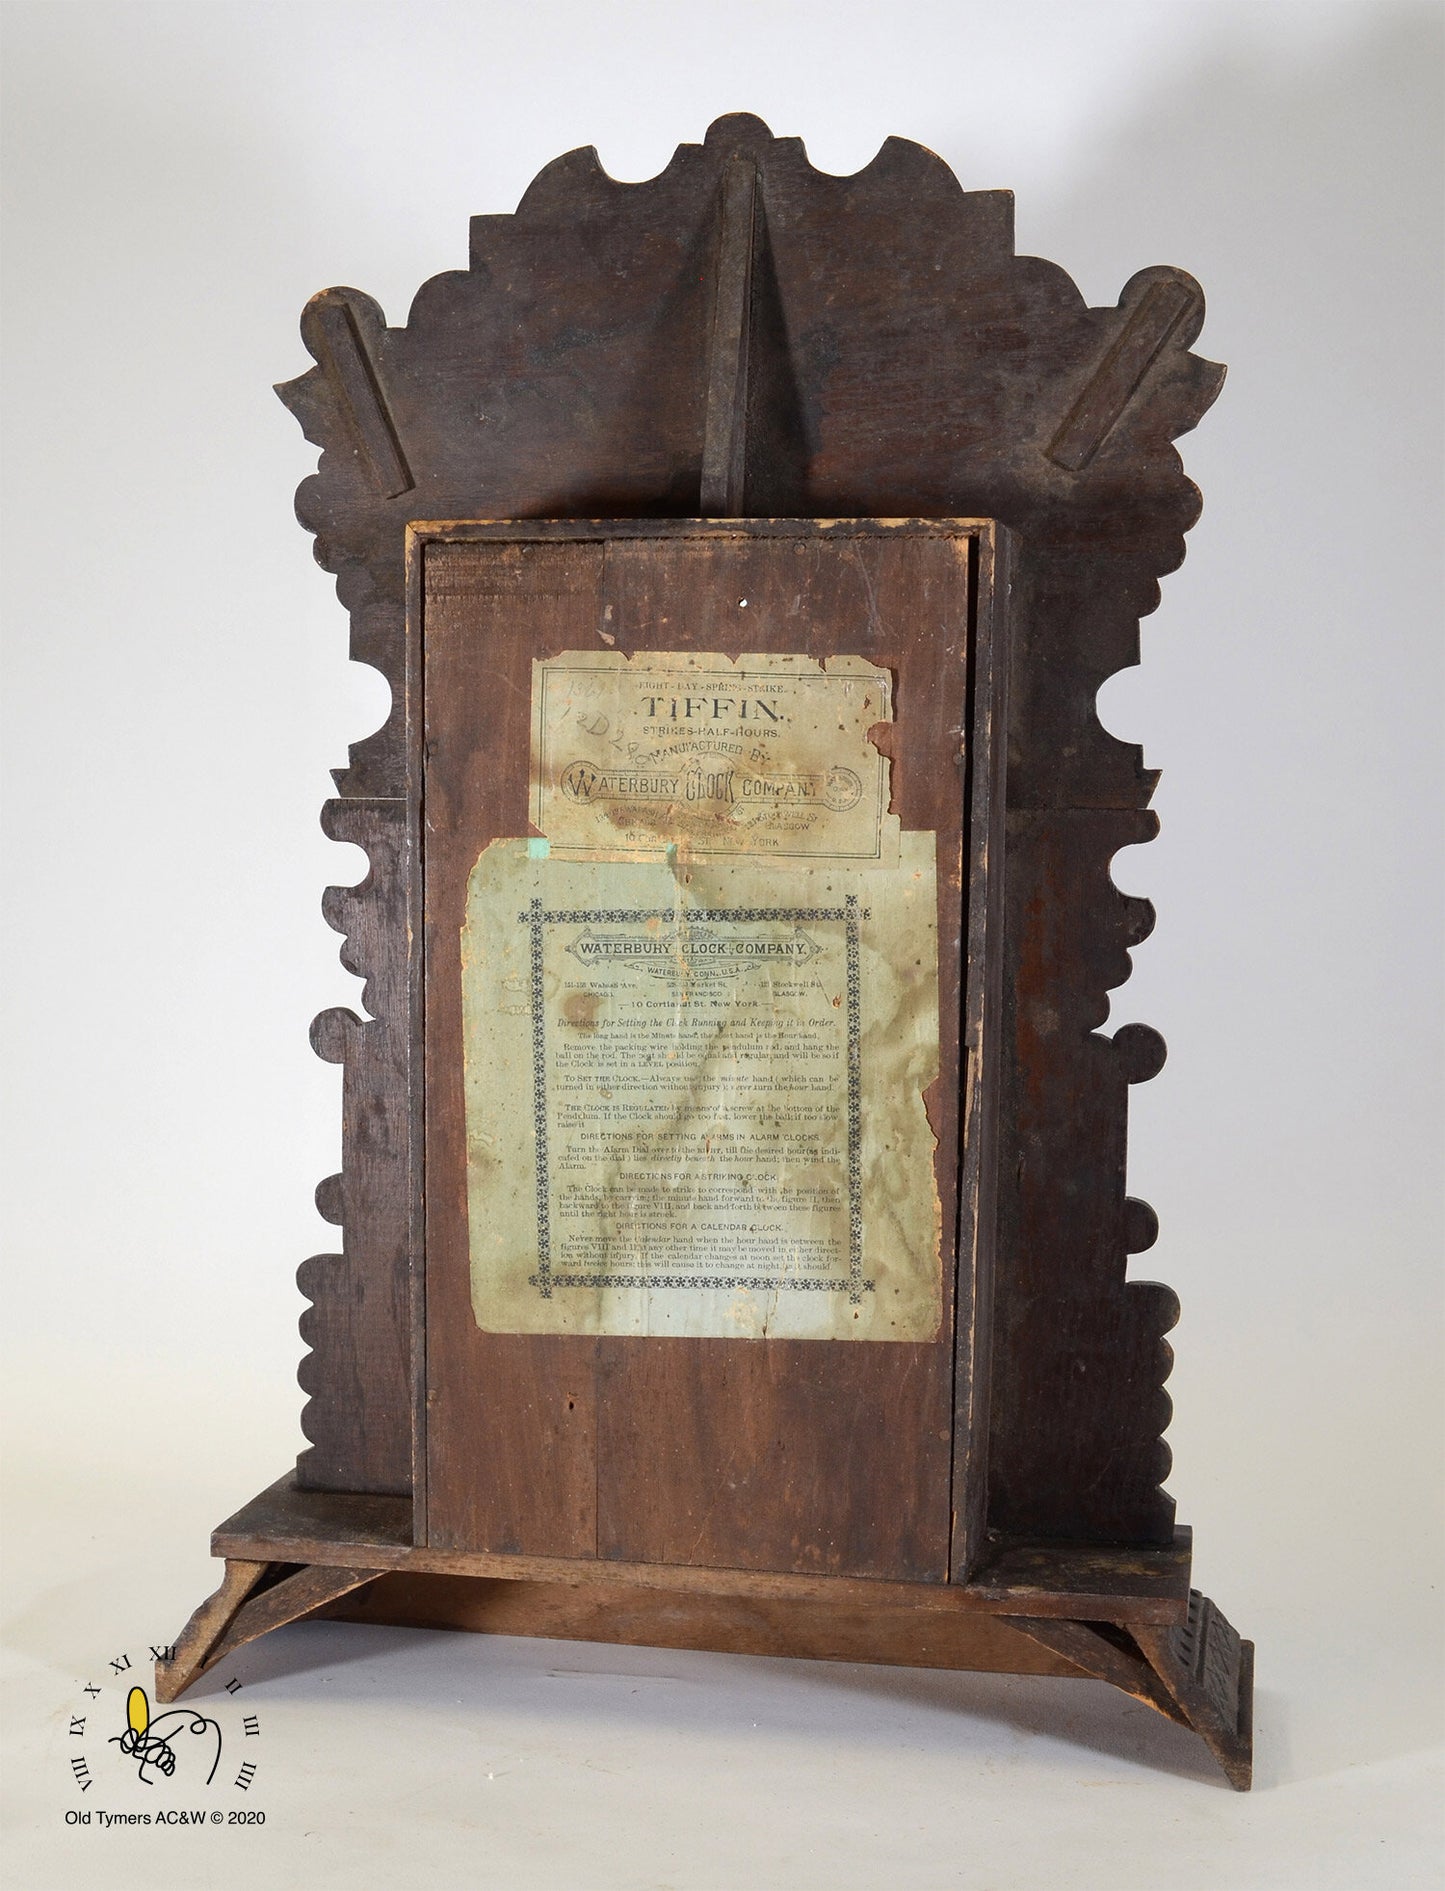 EIGHT-DAY-SPRING-STRIKE.
TIFFIN.
STRIKES-HALF-HOURS.
MANUFACTURED BY
WATERBURY CLOCK COMPANY
GLASGOW
NEW YORK
WATERBURY CLOCK COMPANY.
WATERBURY CONN., U.S.A.
Wabash Ave. Market St. Stockwell St.
CHICAGO. SAN FRANCISCO GLASGOW.
—10 Cortlandt St. New York—
Directions for Setting the Clock Running and Keeping it in Order.
The long hand is the Minute hand, the short hand is the Hour hand.
Remove the packing wire holding the pendulum rod, and hang the
ball on the rod. The beat should be equal and regular, and will be so if
the Clock is set in a LEVEL position.
TO SET THE CLOCK.—Always use the minute hand (which can be
turned in either direction without injury); never turn the hour hand.
THE CLOCK IS REGULATED by means of a screw at the bottom of the
Pendulum. If the Clock should go too fast, lower the ball; if too slow
raise it
DIRECTIONS FOR SETTING ALARMS IN ALARM CLOCKS.
Turn the Alarm Dial over to the , till the desired hour (as indi-
cated on the dial) lies directly beneath the hour hand; then wind the
Alarm.
DIRECTIONS FOR A STRIKING CLOCK.
The Clock can be made to strike to correspond with the position of
the hands, by carrying the minute hand forward to the figure , then
backward to the figure VIII, and back and forth between these figures
until the right hour is struck.
DIRECTIONS FOR A CALENDAR CLOCK.
Never move the Calendar hand when the hour hand is between the
figures VIII and at any other time it may be moved in either direct-
ion without injury. If the calendar changes at noon set the clock for-
ward twelve hours; this will cause it to change at night, as it should.
XII
XI
X
IX
VIII
II
III
IIII
Old Tymers AC&W © 2020